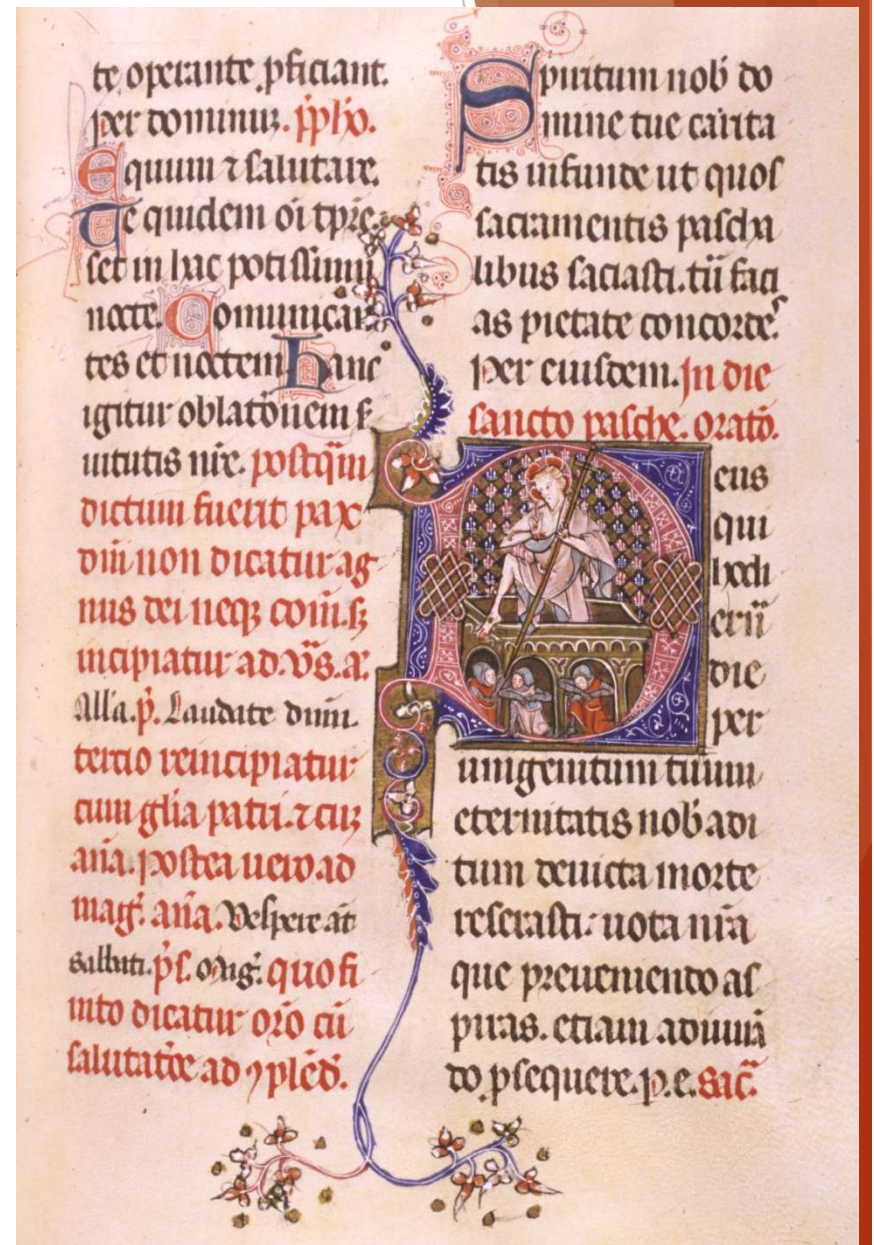 te operante ꝓficiant.
per dominuʒ. p̄pho.
Equum ⁊ salutare.
Te quidem oī tp̄re.
set in hac potissimū
nocte. Comunican
tes et noctem hanc
igitur oblatōnem ẜ
uitutis nr̄e. postq̄m
dictum fuerit pax
dn̄i non dicatur ag
nus dei neqʒ com̄. sʒ
incipiatur ad v̄s. a͞.
All'a. p̄. Laudate dn̄m.
tercio reincipiatur
cum gl̄ia patri. ⁊ cuʒ
an̄a. postea uero ad
maḡ. an̄a. Vespere at̄
sabbati. p̄s. maḡ. quo fi
nito dicatur orō cū
salutatōe ad ꝯplēd.
Spiritum nob̄ do
mine tue carita
tis infunde ut quos
sacramentis pascha
libus saciasti. tū faci
as pietate concordes.
Per eiusdem. In die
sancto pasche. oratō.
Deus
qui
hodi
erna
die
per
unigenitum tuum
eternitatis nob̄ adi
tum deuicta morte
reserasti. uota nr̄a
que preueniendo as
piras. etiam adiuuā
do ꝓsequere. p. e. sac̄.